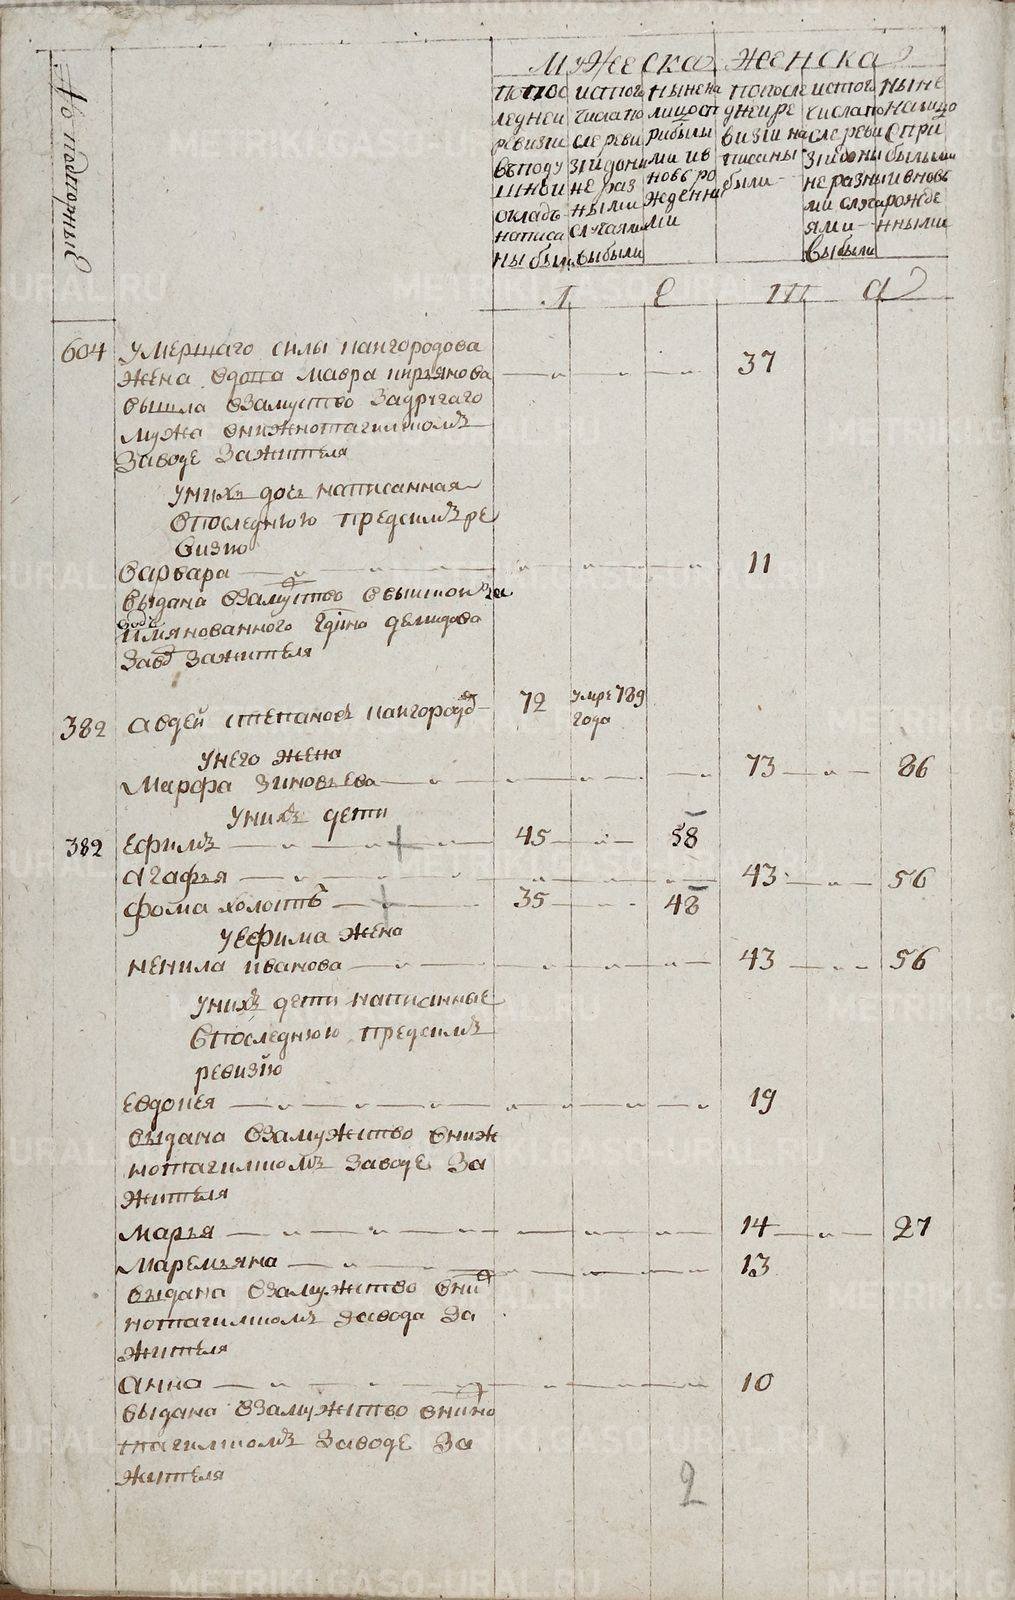 мужеска женска
№ подворные
по пос
ледней
ревизии
в поду
шной
окладъ
написа
ны были
ис того
числа по
сле реви
зии до ны
не раз
ными
случаями
выбыли
ныне на
лицо сп
рибылы
ми и в
новь ро
жденны
ми
по после
дней ре
визии на
писаны
были
ис того
числа по
сле реви
зии до ны
не разны
ми случа
ями
выбыли
ныне
на лицо
с при
былыми
и вновь
рожде
нными
л е т а
604 умершаго силы паигородова
жена вдова мавра
вышла взамуство за другаго 37
мужа в нижнотагилскомъ
заводе за жителя
у них дочь написанная
в последнюю пред симъ ре
визию
варвара 11
выдана взамуство в вышшои
имянованного демидова
завод за жителя
382 авдей степановъ паигородов 72 умре 789
года
у него жена
марфа зиновьева 73 86
у нихъ дети
382 ефимъ 45 58
агафья 43 56
фома холостъ 35 48
у ефима жена
ненила иванова 43 56
у нихъ дети написанные
в последнюю пред симъ
ревизйю
евдокея 19
выдана взамужство в ниж
нотагилскомъ заводе за
жителя
марья 14 27
маремьяна 13
выдана взамужство в ниж
нотагилскомъ завода за
жителя
анна 10
выдана взамужство в нижно
тагилскомъ заводе за
жителя
2
METRIKI.GASO-URAL.RU